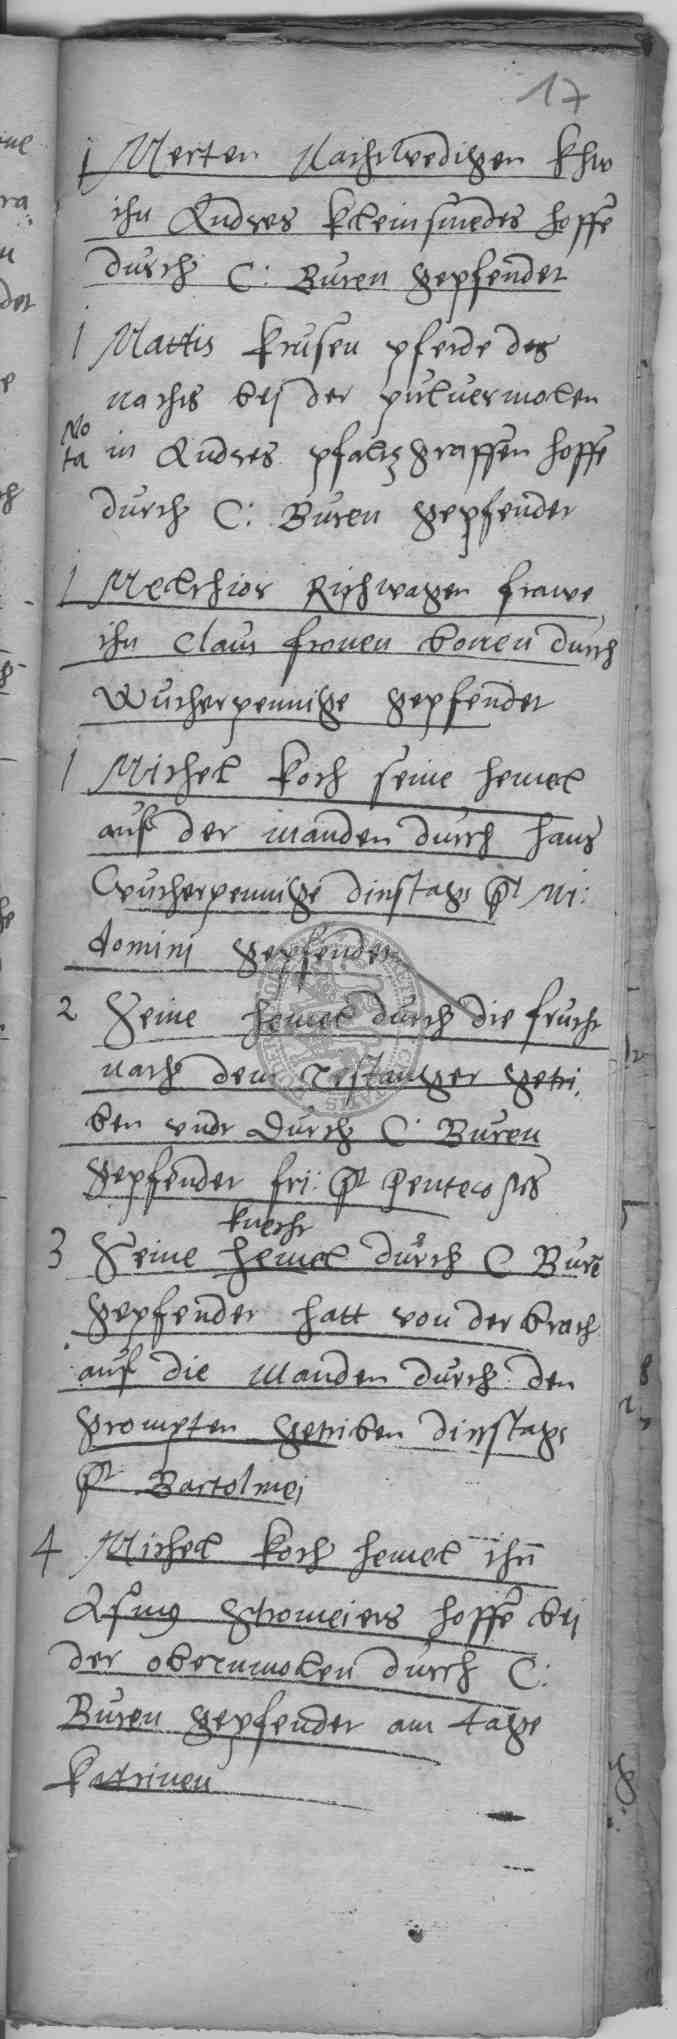 17
1 Merten Nachtwedigen khw
ihn Andres kleinsmedes hoffe
durch C: Buren gepfendet
1 Mattis krusen pferde des
nachts bej der puluermolen
No
ta in Andres pfaltzgraffen hoffe
durch C: Buren gepfendet
1 Melchior Richwagen frawe
ihn claus fronen bonen durch
Wucherpennige gepfendet
1 Michel koch seine hemel
auf der manden durch hans
Wucherpennige dinstags pt
domini gepfendet
2 Seine hemel durch die frucht
nach dem getri
ben vndt durch C: Buren
gepfendet fri: pt pentecostes
knecht
3 Seine hemel durch C Buren
gepfendet hatt von der brach
auf die manden durch den
prompten getriben dinstags
pt Bartolmej
4 Michel koch hemel ihn
Asmus hoffe bej
der obernmolen durch C:
Buren gepfendet am tage
katrinen